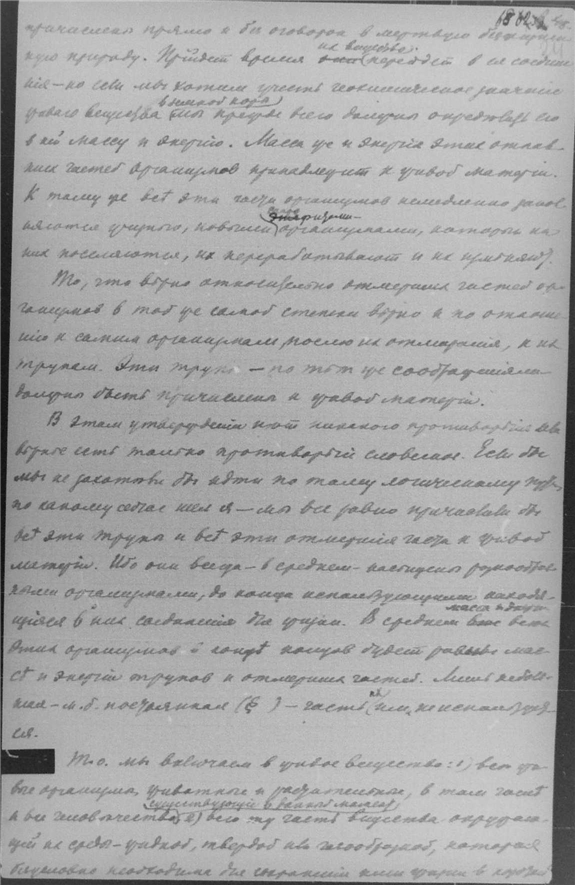 причислены прямо и без оговорок в мертвую
ную природу. Пройдет время их вещество перейдет в ея соедине
ния – но если мы хотим учесть геохимическое значение
живого вещества в земной коре мы прежде всего должны определить его
в ней массу и энергию. Масса же и энергия этих отпав
ших частей организмов принадлежит к живой материи.
К тому же всѣ эти части организмов немедленно запол
няются жизнью, новыми организмами, которые на
них поселяются, их перерабатывают и их изменяют.
То, что вѣрно относительно отмерших частей ор
ганизмов в той же самой степени вѣрно и по отноше
нию к самим организмам, после их отмирания, к их
трупам. Эти трупы – по тѣм же соображениям –
должны быть причислены к живой матерiи.
В этом утверждении нѣт никакого противорѣчия или
вѣрнее есть только противорѣчие словесное. Если бы
мы не захотели бы идти по тому логическому пути,
по какому сейчас шел я – мы все равно причислили бы
всѣ эти трупы и всѣ эти отмершия части к живой
матерiи. Ибо они всегда – в среднем – насыщены разнообраз
ными организмами, до конца использующими находя
щiеся в них соединения для жизни. В среднем масса и энергия всех
этих организмов в концѣ концов будет равна мас
сѣ и энергiи трупов и отмерших частей. Лишь неболь
шая – м.б. постоянная ( ) – часть их не использует
ся.
Т.о. мы включаем в живое вещество: 1) все жи
вые организмы, животные и растительные, в том числѣ
и все человечество, существующий в данный момент, 2) всю ту часть вещества окружаю
щей их среды – жидкой, твердой или газообразной, которая
безусловно необходима для сохранения ими жизни в